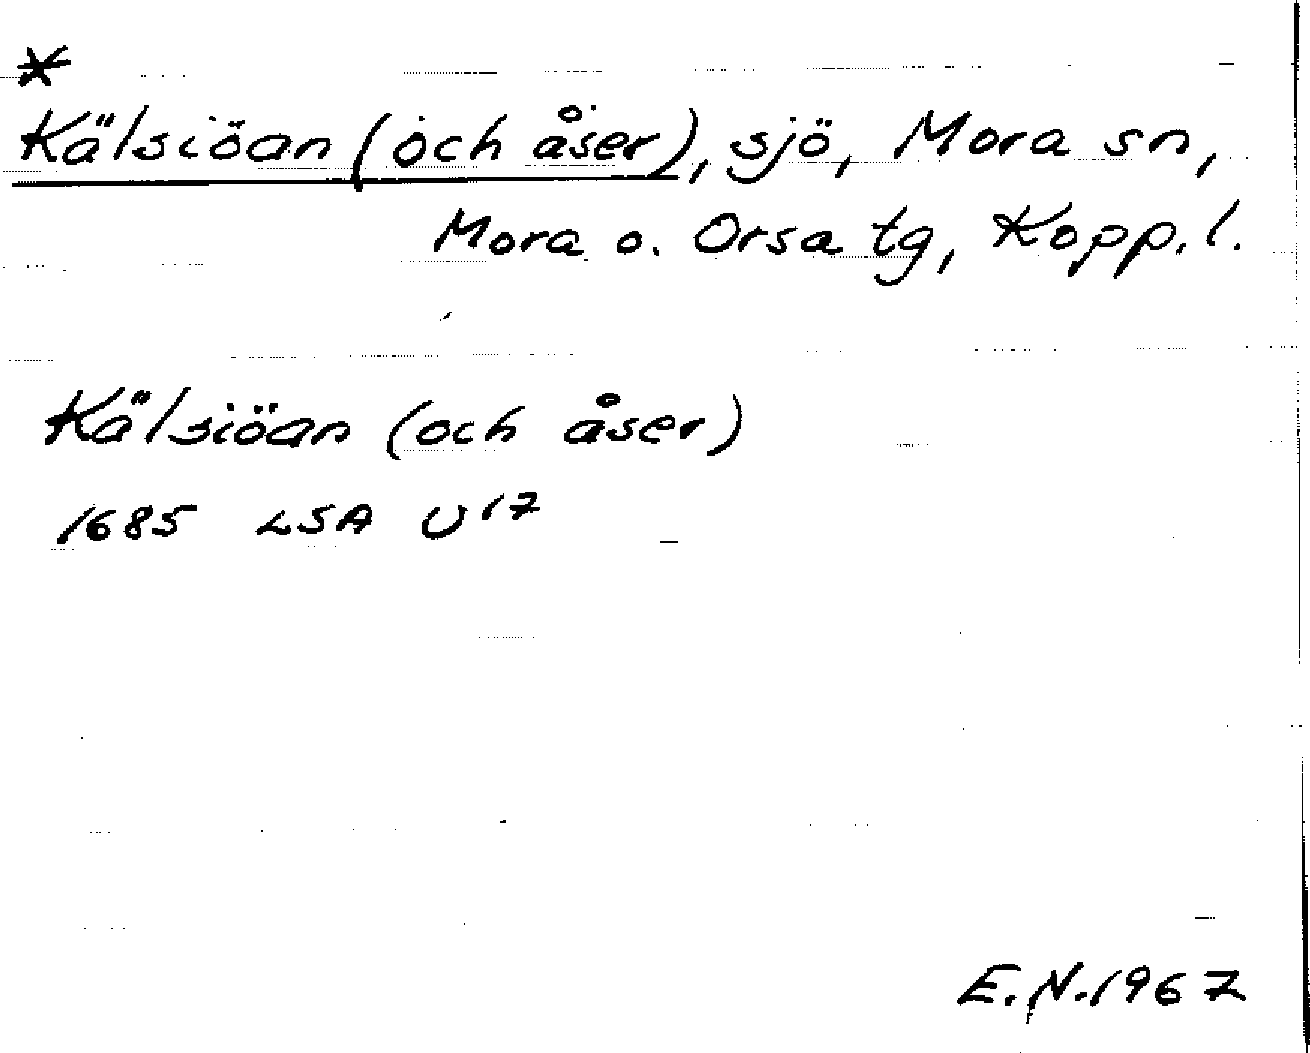 *
Kälsiöan (och åser), sjö, Mora sn,
Mora o. Orsa tg, Kopp. l.
Kälsiöan (och åser)
1685 LSA U 17
E.N. 1967